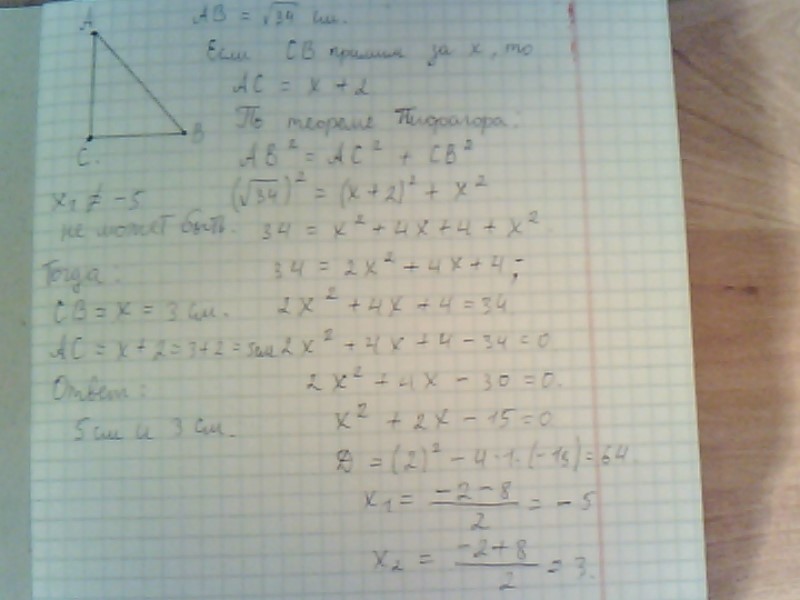 A
B
C.
AB = √34 см.
Если CB примим за x, то
AC = x + 2
По теореме Пифагора:
AB² = AC² + CB²
(√34)² = (x+2)² + x²
34 = x² + 4x + 4 + x²
34 = 2x² + 4x + 4;
2x² + 4x + 4 = 34
2x² + 4x + 4 - 34 = 0
2x² + 4x - 30 = 0.
x² + 2x - 15 = 0
D = (2)² - 4·1·(-15) = 64.
x₁ = (-2-8)/2 = -5
x₂ = (-2+8)/2 = 3.
x₁ ≠ -5
не может быть.
Тогда:
CB = x = 3 см.
AC = x + 2 = 3 + 2 = 5см
Ответ:
5 см и 3 см.